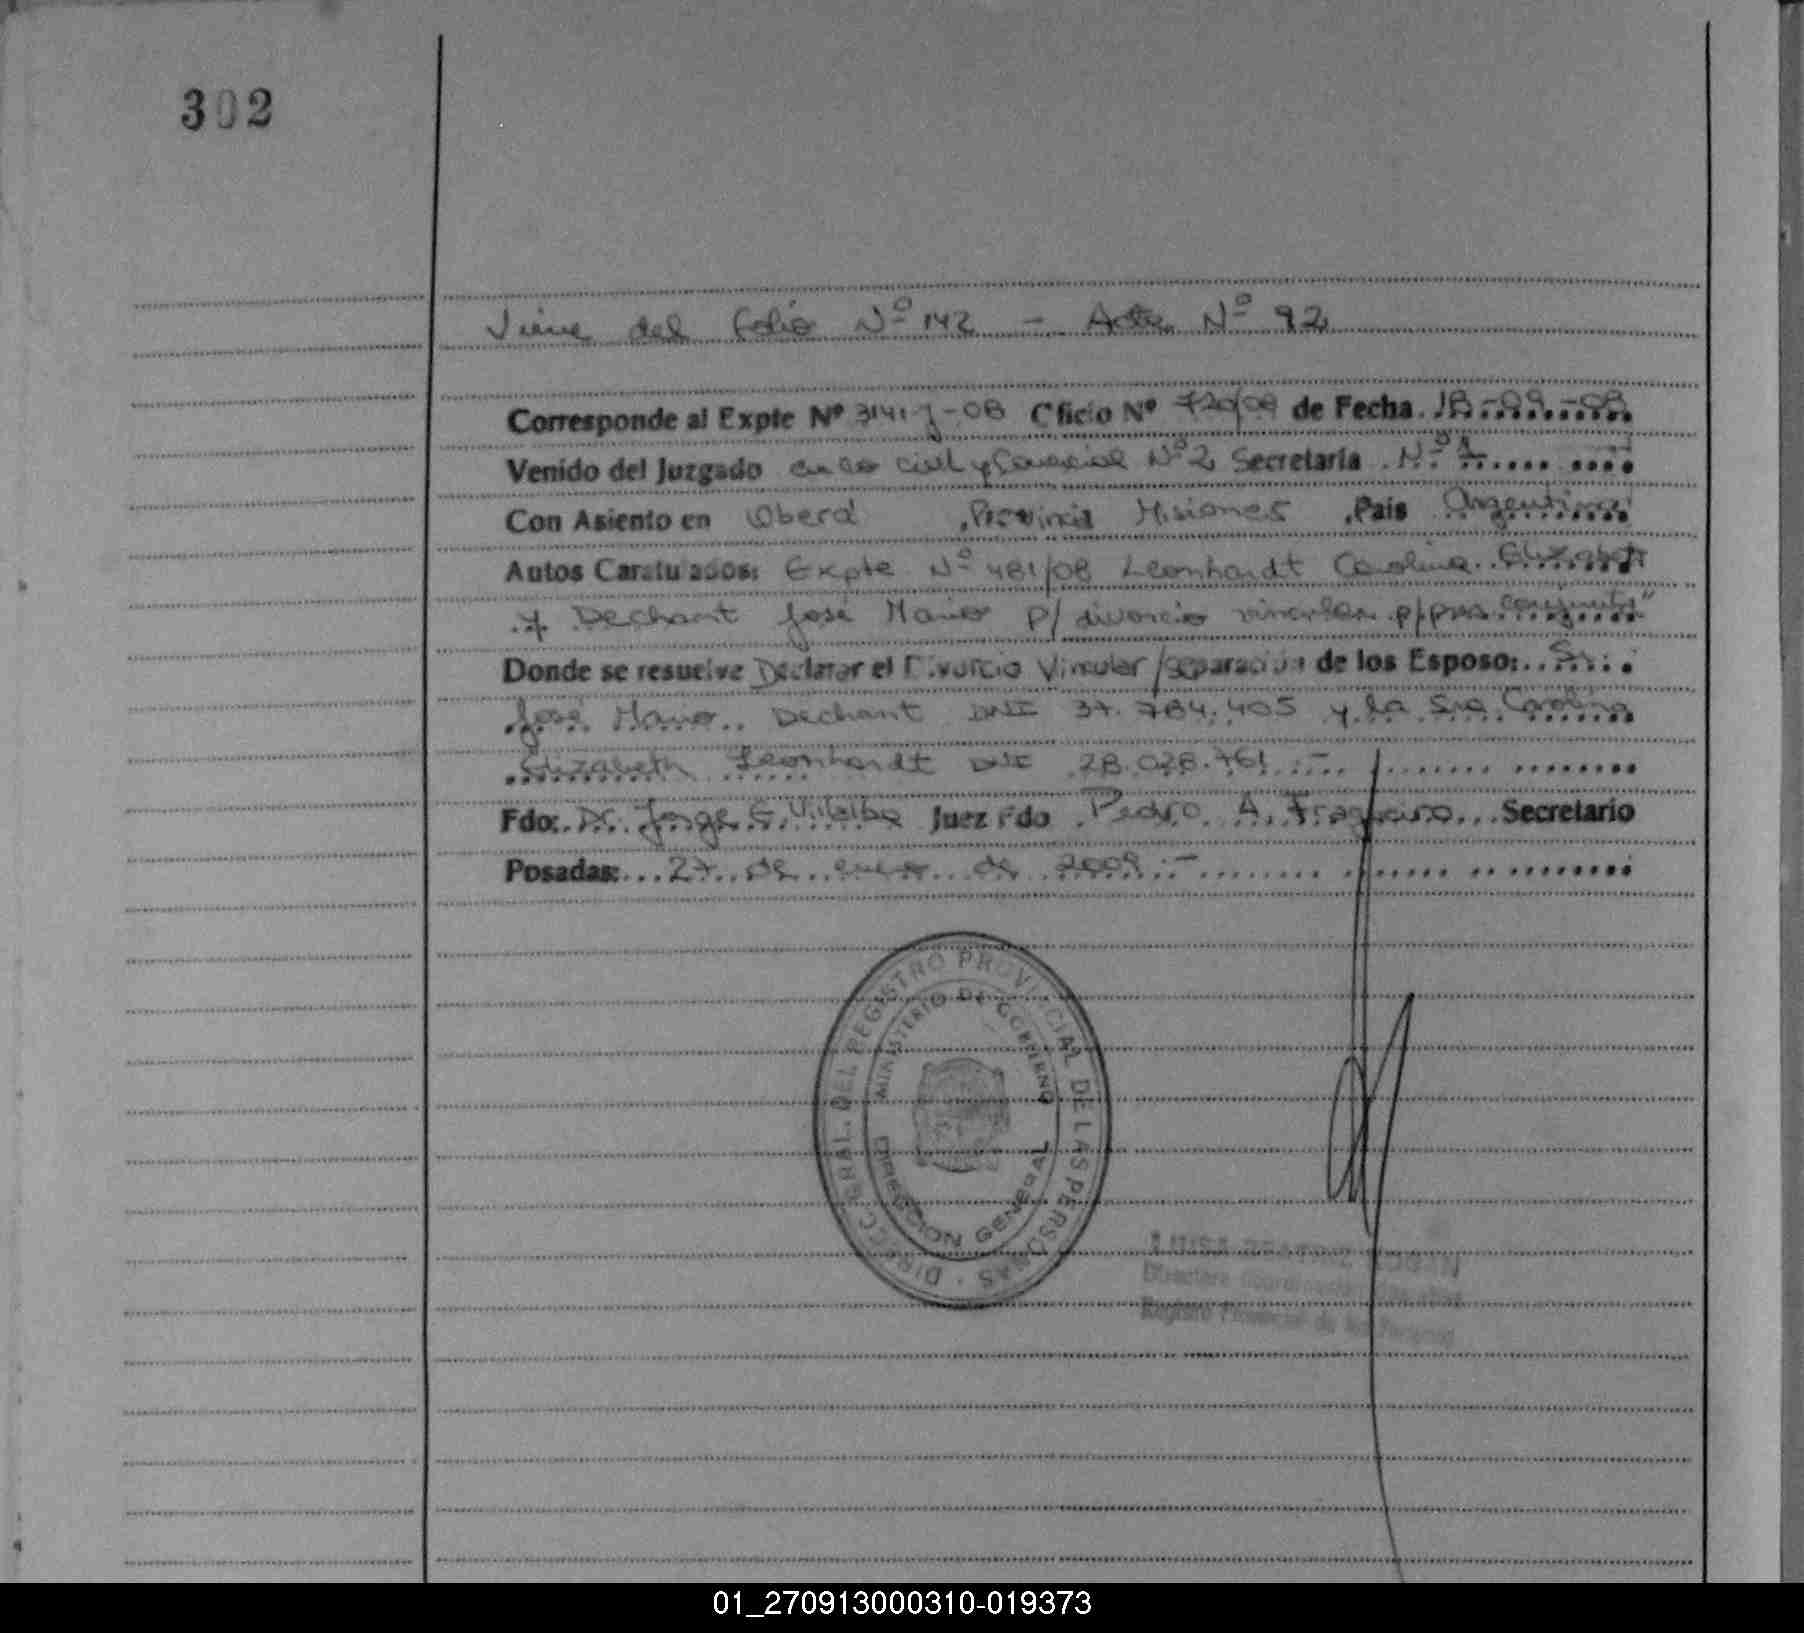 302
Viene del folio Nº 142 - Acta Nº 92
Corresponde al Expte Nº 3141-J-08 Oficio Nº 720/08 de Fecha 18-09-08
Venido del Juzgado en lo civil y Comercial Nº 2 Secretaría Nº 1
Con Asiento en Oberá, Provincia Misiones, País Argentina
Autos Caratulados: Expte Nº 481/08 Leonhardt Carolina Elizabeth
y Dechant José Mario p/ divorcio vincular p/pres. conjunta"
Donde se resuelve Declarar el Divorcio Vincular/separación de los Esposo: Sr.
José Mario Dechant DNI 37.784.405 y la Sra Carolina
Elizabeth Leonhardt DNI 28.028.761.-
Fdo: Dr. Jorge E. Villalba Juez Fdo Pedro A. Fragueiro Secretario
Posadas: 27 de enero de 2009.-
DIRECC. GRAL. DEL REGISTRO PROVINCIAL DE LAS PERSONAS
MINISTERIO DE GOBIERNO
DIRECCION GENERAL
LUISA BEATRIZ
Directora
Registro Provincial de las Personas
01_270913000310-019373